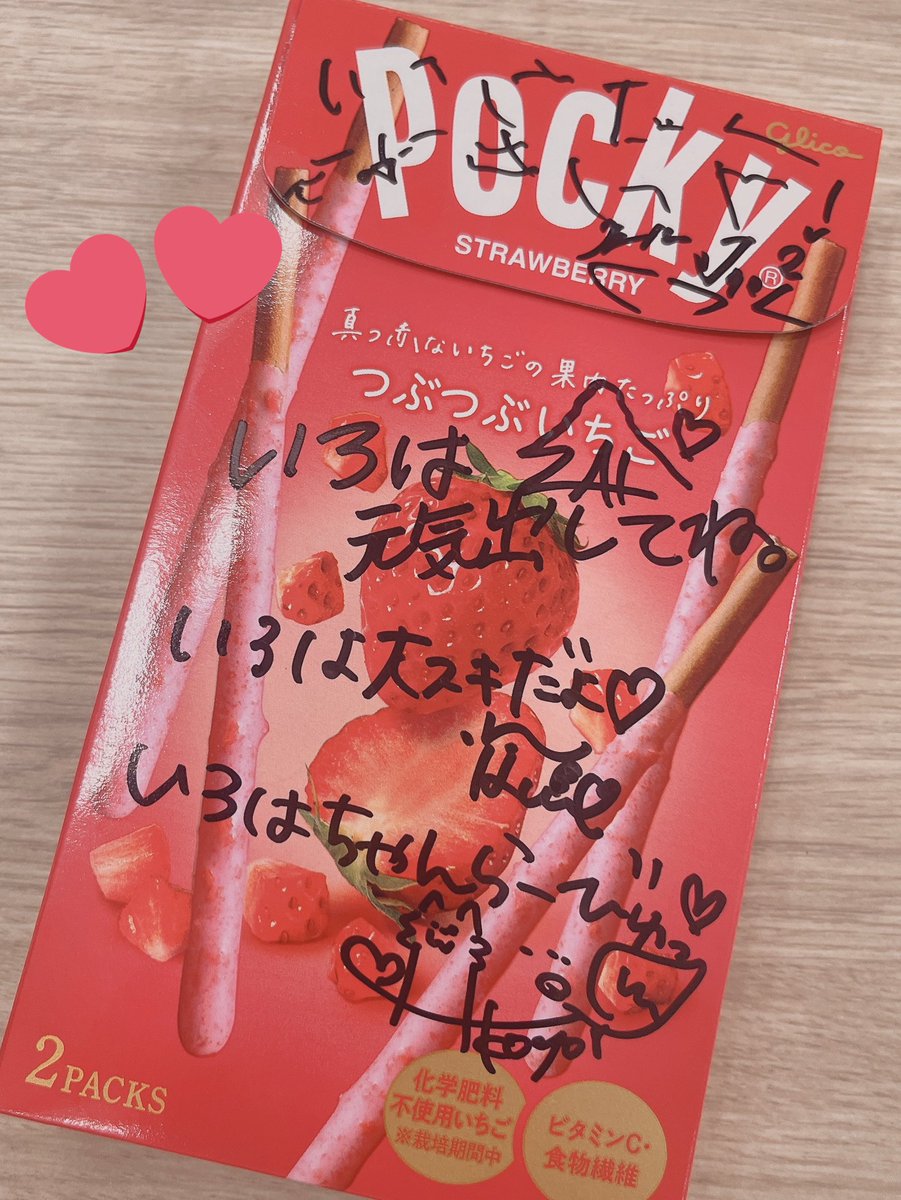 Pocky
Glico
STRAWBERRY
真っ赤ないちごの果肉たっぷり
つぶつぶいちご
いろは
元気出してね。
いろは大スキだよ♡
いろはちゃんらーびゅっ♡
koyori
2 PACKS
化学肥料
不使用いちご
※栽培期間中
ビタミンC・
食物繊維